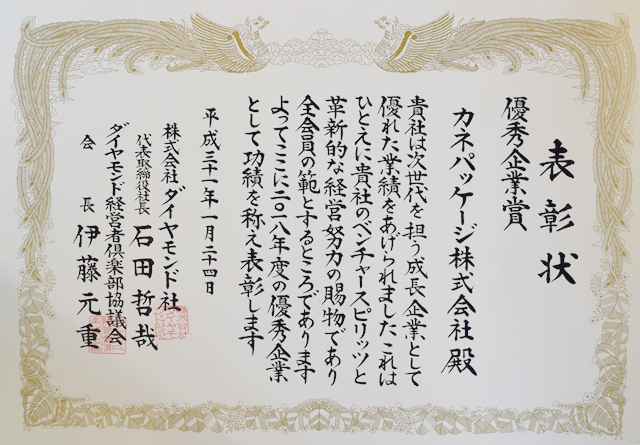 表彰状
優秀企業賞
カネパッケージ株式会社 殿
貴社は次世代を担う成長企業として
優れた業績をあげられました これは
ひとえに貴社のベンチャースピリッツと
革新的な経営努力の賜物であり
全会員の範とするところであります
よってここに二〇一八年度の優秀企業
として功績を称え表彰します
平成三十一年一月二十四日
株式会社 ダイヤモンド社
代表取締役社長 石田哲哉
ダイヤモンド経営者倶楽部協議会
会長 伊藤元重